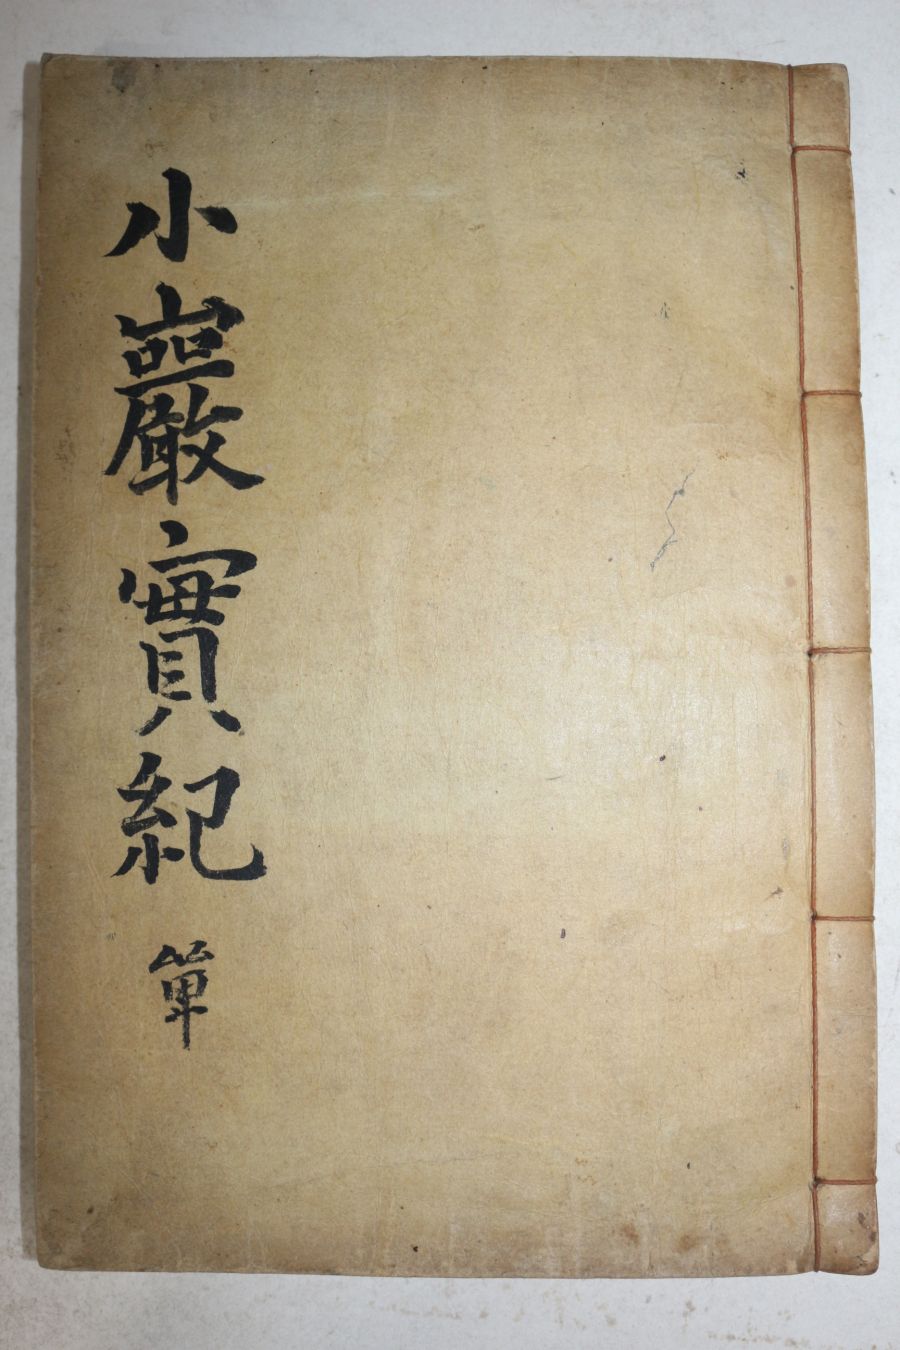 小巖實紀
單